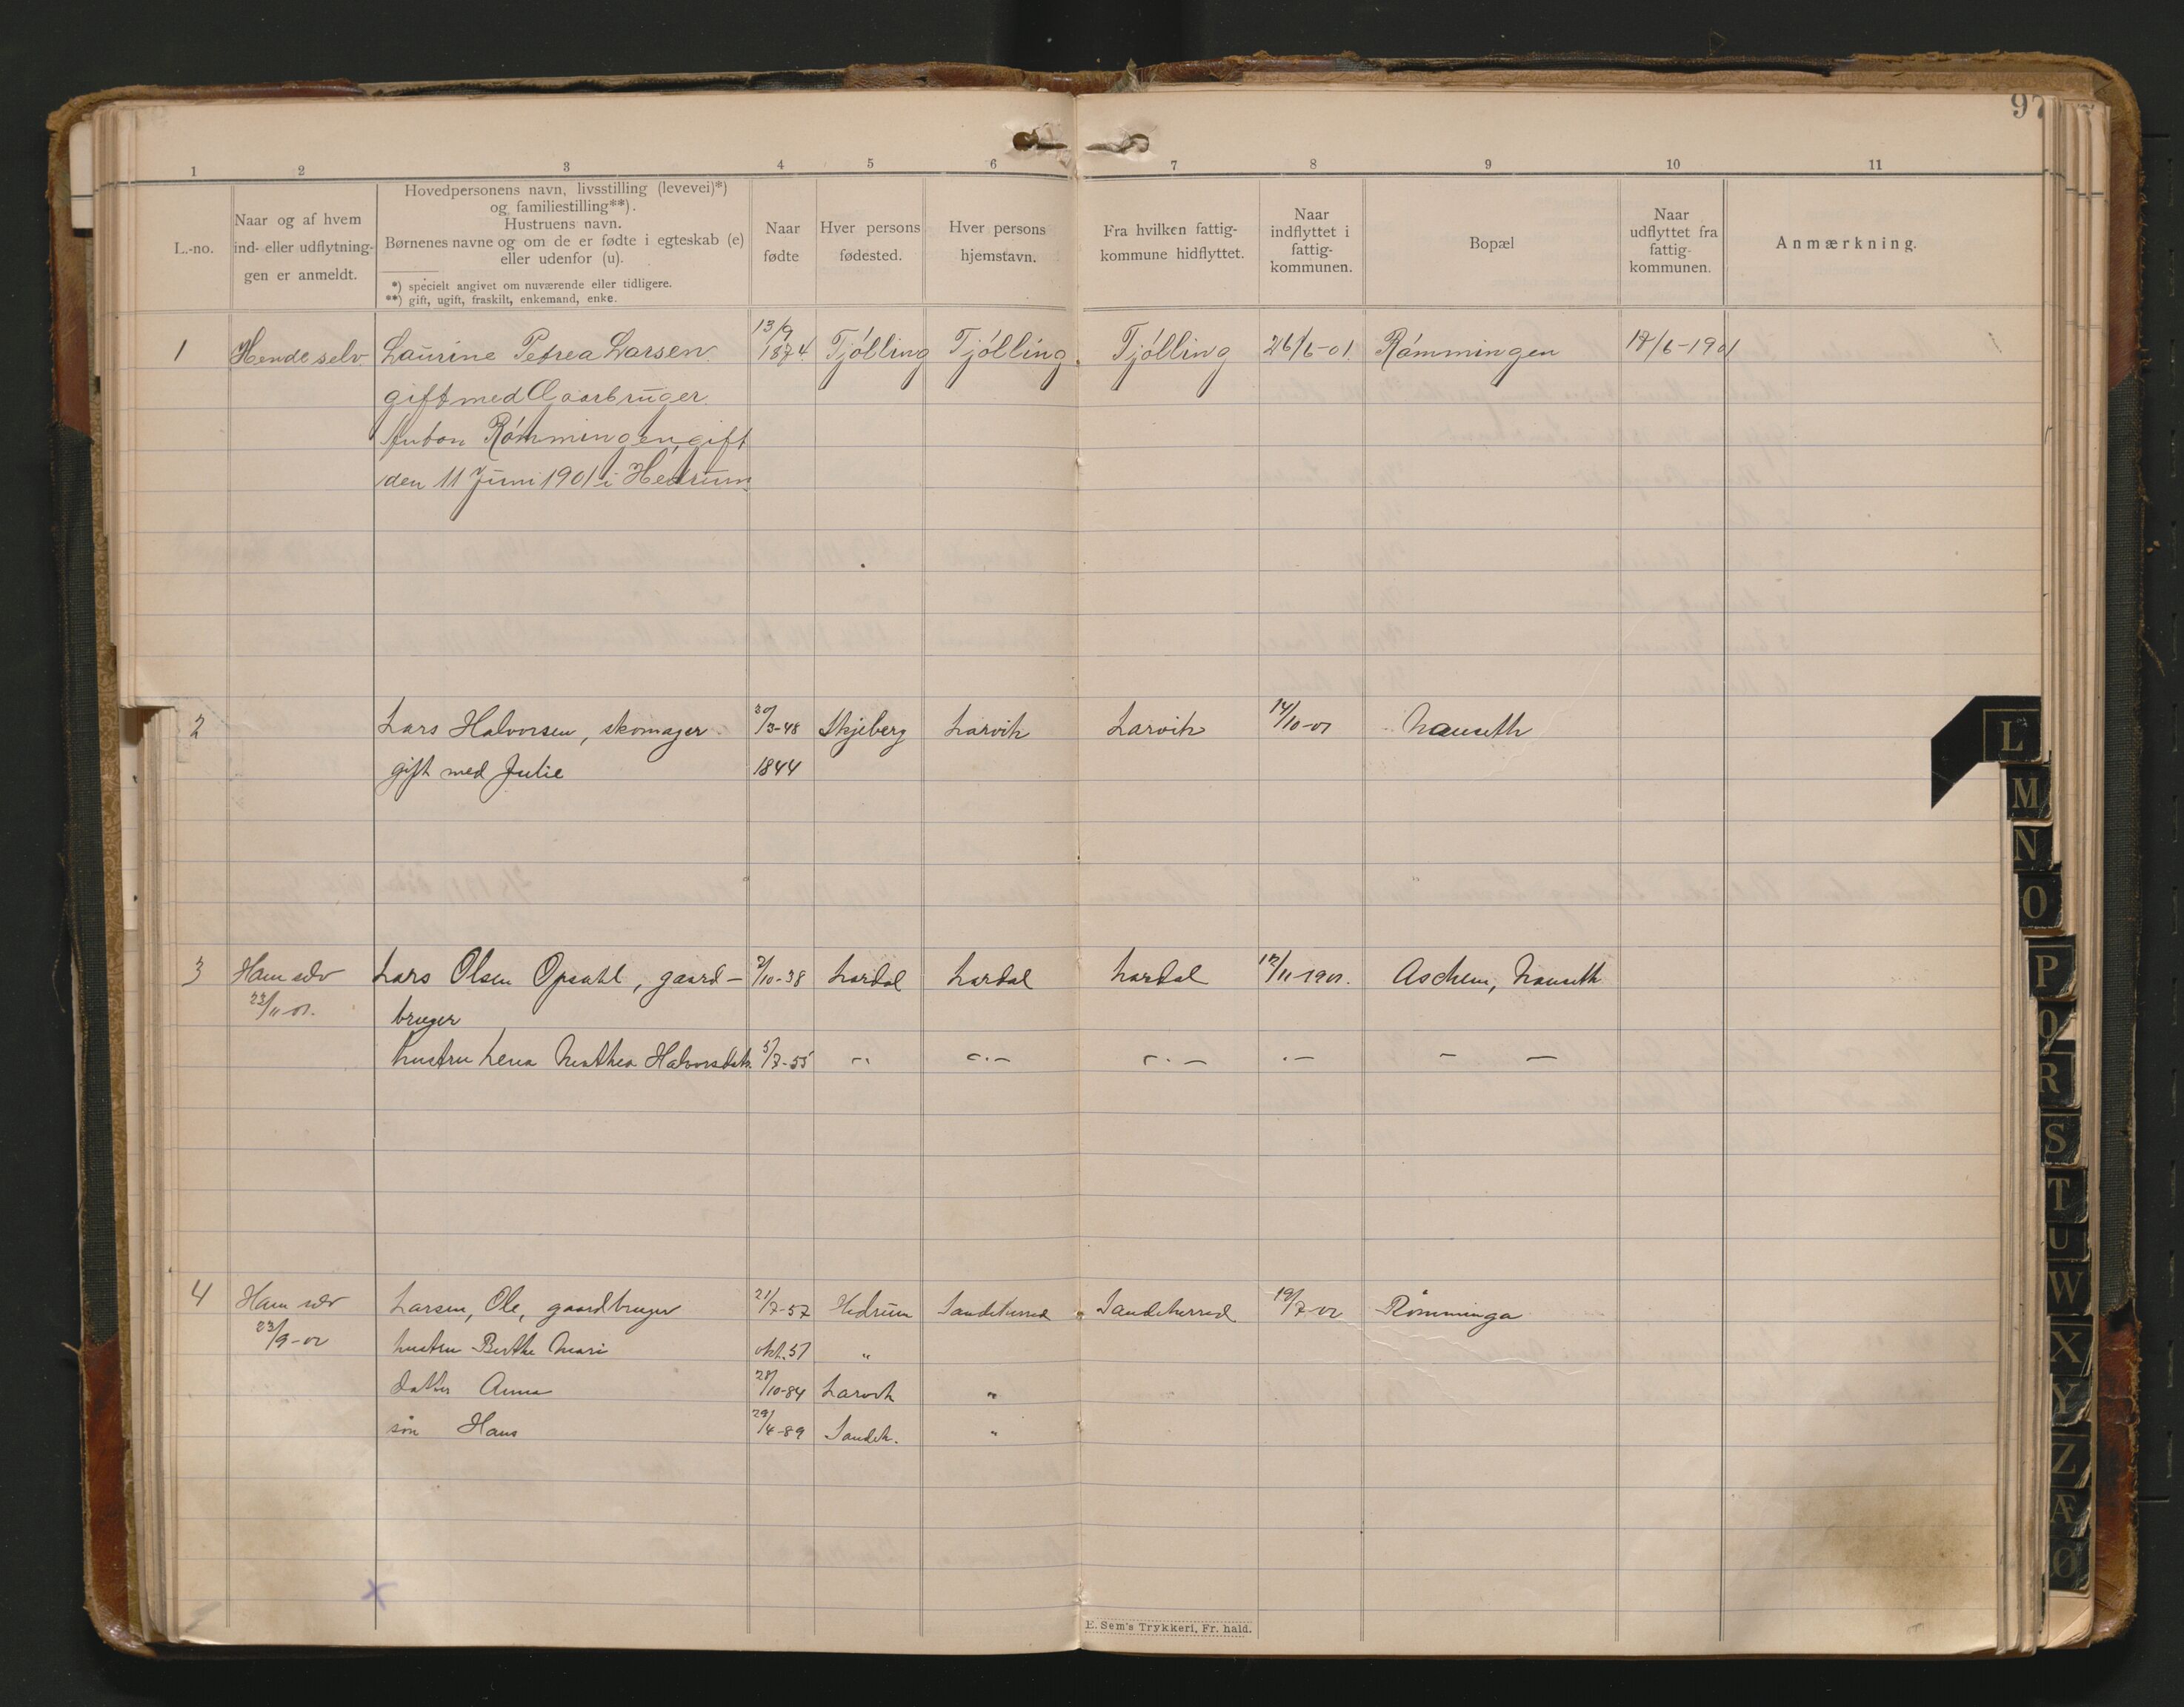 97
1 2 3 4 5 6 7 8 9 10 11
L.-no.
Naar og af hvem
ind- eller udflytnin-
gen er anmeldt.
Hovedpersonens navn, livsstilling (levevei)*)
og familiestilling**).
Hustruens navn.
Børnenes navne og om de er fødte i egteskab (e)
eller udenfor (u).
*) specielt angivet om nuværende eller tidligere.
**) gift, ugift, fraskilt, enkemand, enke.
Naar
fødte
Hver persons
fødested.
Hver persons
hjemstavn.
Fra hvilken fattig-
kommune hidflyttet.
Naar
indflyttet i
fattig-
kommunen.
Bopæl
Naar
udflyttet fra
fattig-
kommunen.
Anmærkning.
1 Hende selv Laurine Petrea Larsen 13/9 1874 Tjölling Tjölling Tjölling 26/6-01. Römmingen 17/6-1901
gift med Gaarbruger
Anton Römmingen, gift
den 11 Juni 1901 i Hedrum
2 Lars Halvorsen, skomager 30/3-48 Skjeberg Larvik Larvik 14/10-01 Nanseth
gift med Julie 1844
3 Ham selv Lars Olsen Opsahl, gaard- 2/10-38 Lardal Lardal Lardal 12/11-1901. Aschem, Nanseth
23/11-01. bruger
hustru Lena Mathea Halvorsdatr. 5/7-55 -"- -"- -"- -"- - -
4 Ham selv Larsen, Ole, gaardbruger 21/7-57 Hedrum Sandeherred Sandeherred 19/7-02 Römminga
23/9-02 hustru Berthe Mari okt. 57 "
datter Anna 28/10-84 Larvik "
sön Hans 29/4-89 Sandeh. "
E. Sem's Trykkeri, Fr. hald.
L
M
N
O
P
Q
R
S
T
U
W
X
Y
Z
Æ
Ø